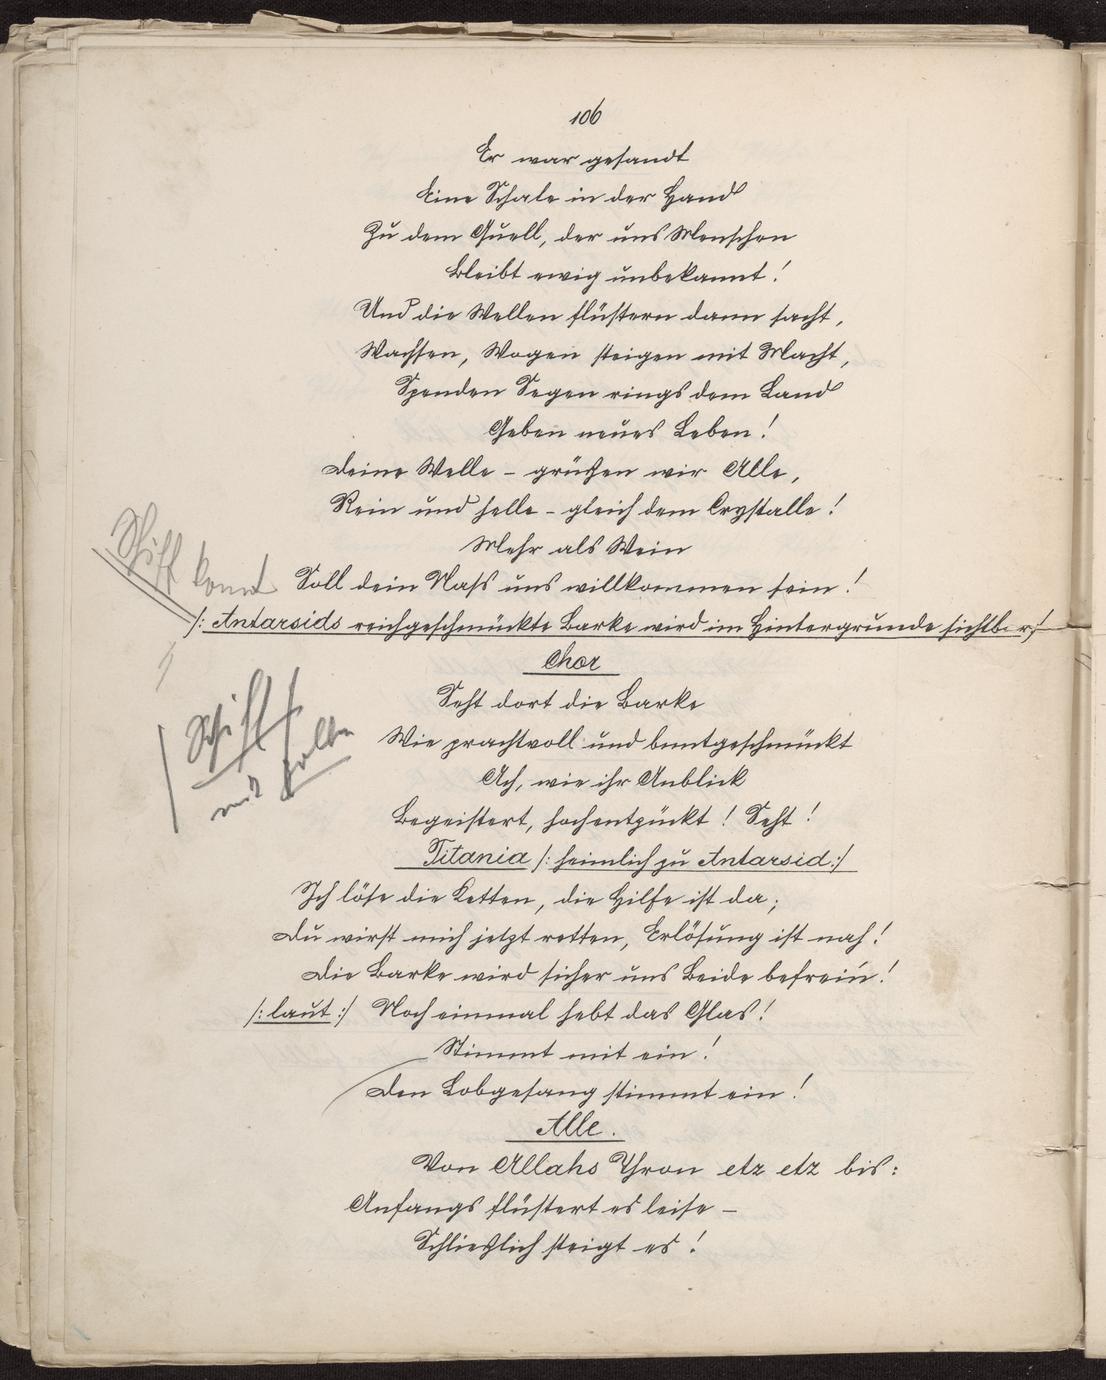 106
Er war gesandt
Eine Schale in der Hand
Zu dem Quell, der uns Menschen
Bleibt ewig unbekannt!
Und die Wellen flüstern dann sacht,
Wachsen, Wogen steigen mit Macht,
Spenden Segen rings dem Land
Geben neues Leben!
Deine Welle - grüßen wir Alle,
Rein und helle - gleich dem Crystalle!
Mehr als Wein
Schiff kommt
Soll dein Naß uns willkommen sein!
/: Antarsids reichgeschmückte Barke wird im Hintergrunde sichtbar :/
Chor
Seht dort die Barke
Schiff
mit
Wie prachtvoll und buntgeschmückt
Ach, wie ihr Anblick
Begeistert, hochentzückt! Seht!
Titania /: heimlich zu Antarsid :/
Ich löse die Ketten, die Hilfe ist da;
Du wirst mich jetzt retten, Erlösung ist nah!
Die Barke wird sicher uns Beide befrein!
/: laut :/ Noch einmal hebt das Glas!
Stimmt mit ein!
Den Lobgesang stimmt ein!
Alle.
Von Allahs Thron etz etz bis:
Anfangs flüstert es leise -
Schließlich steigt es!